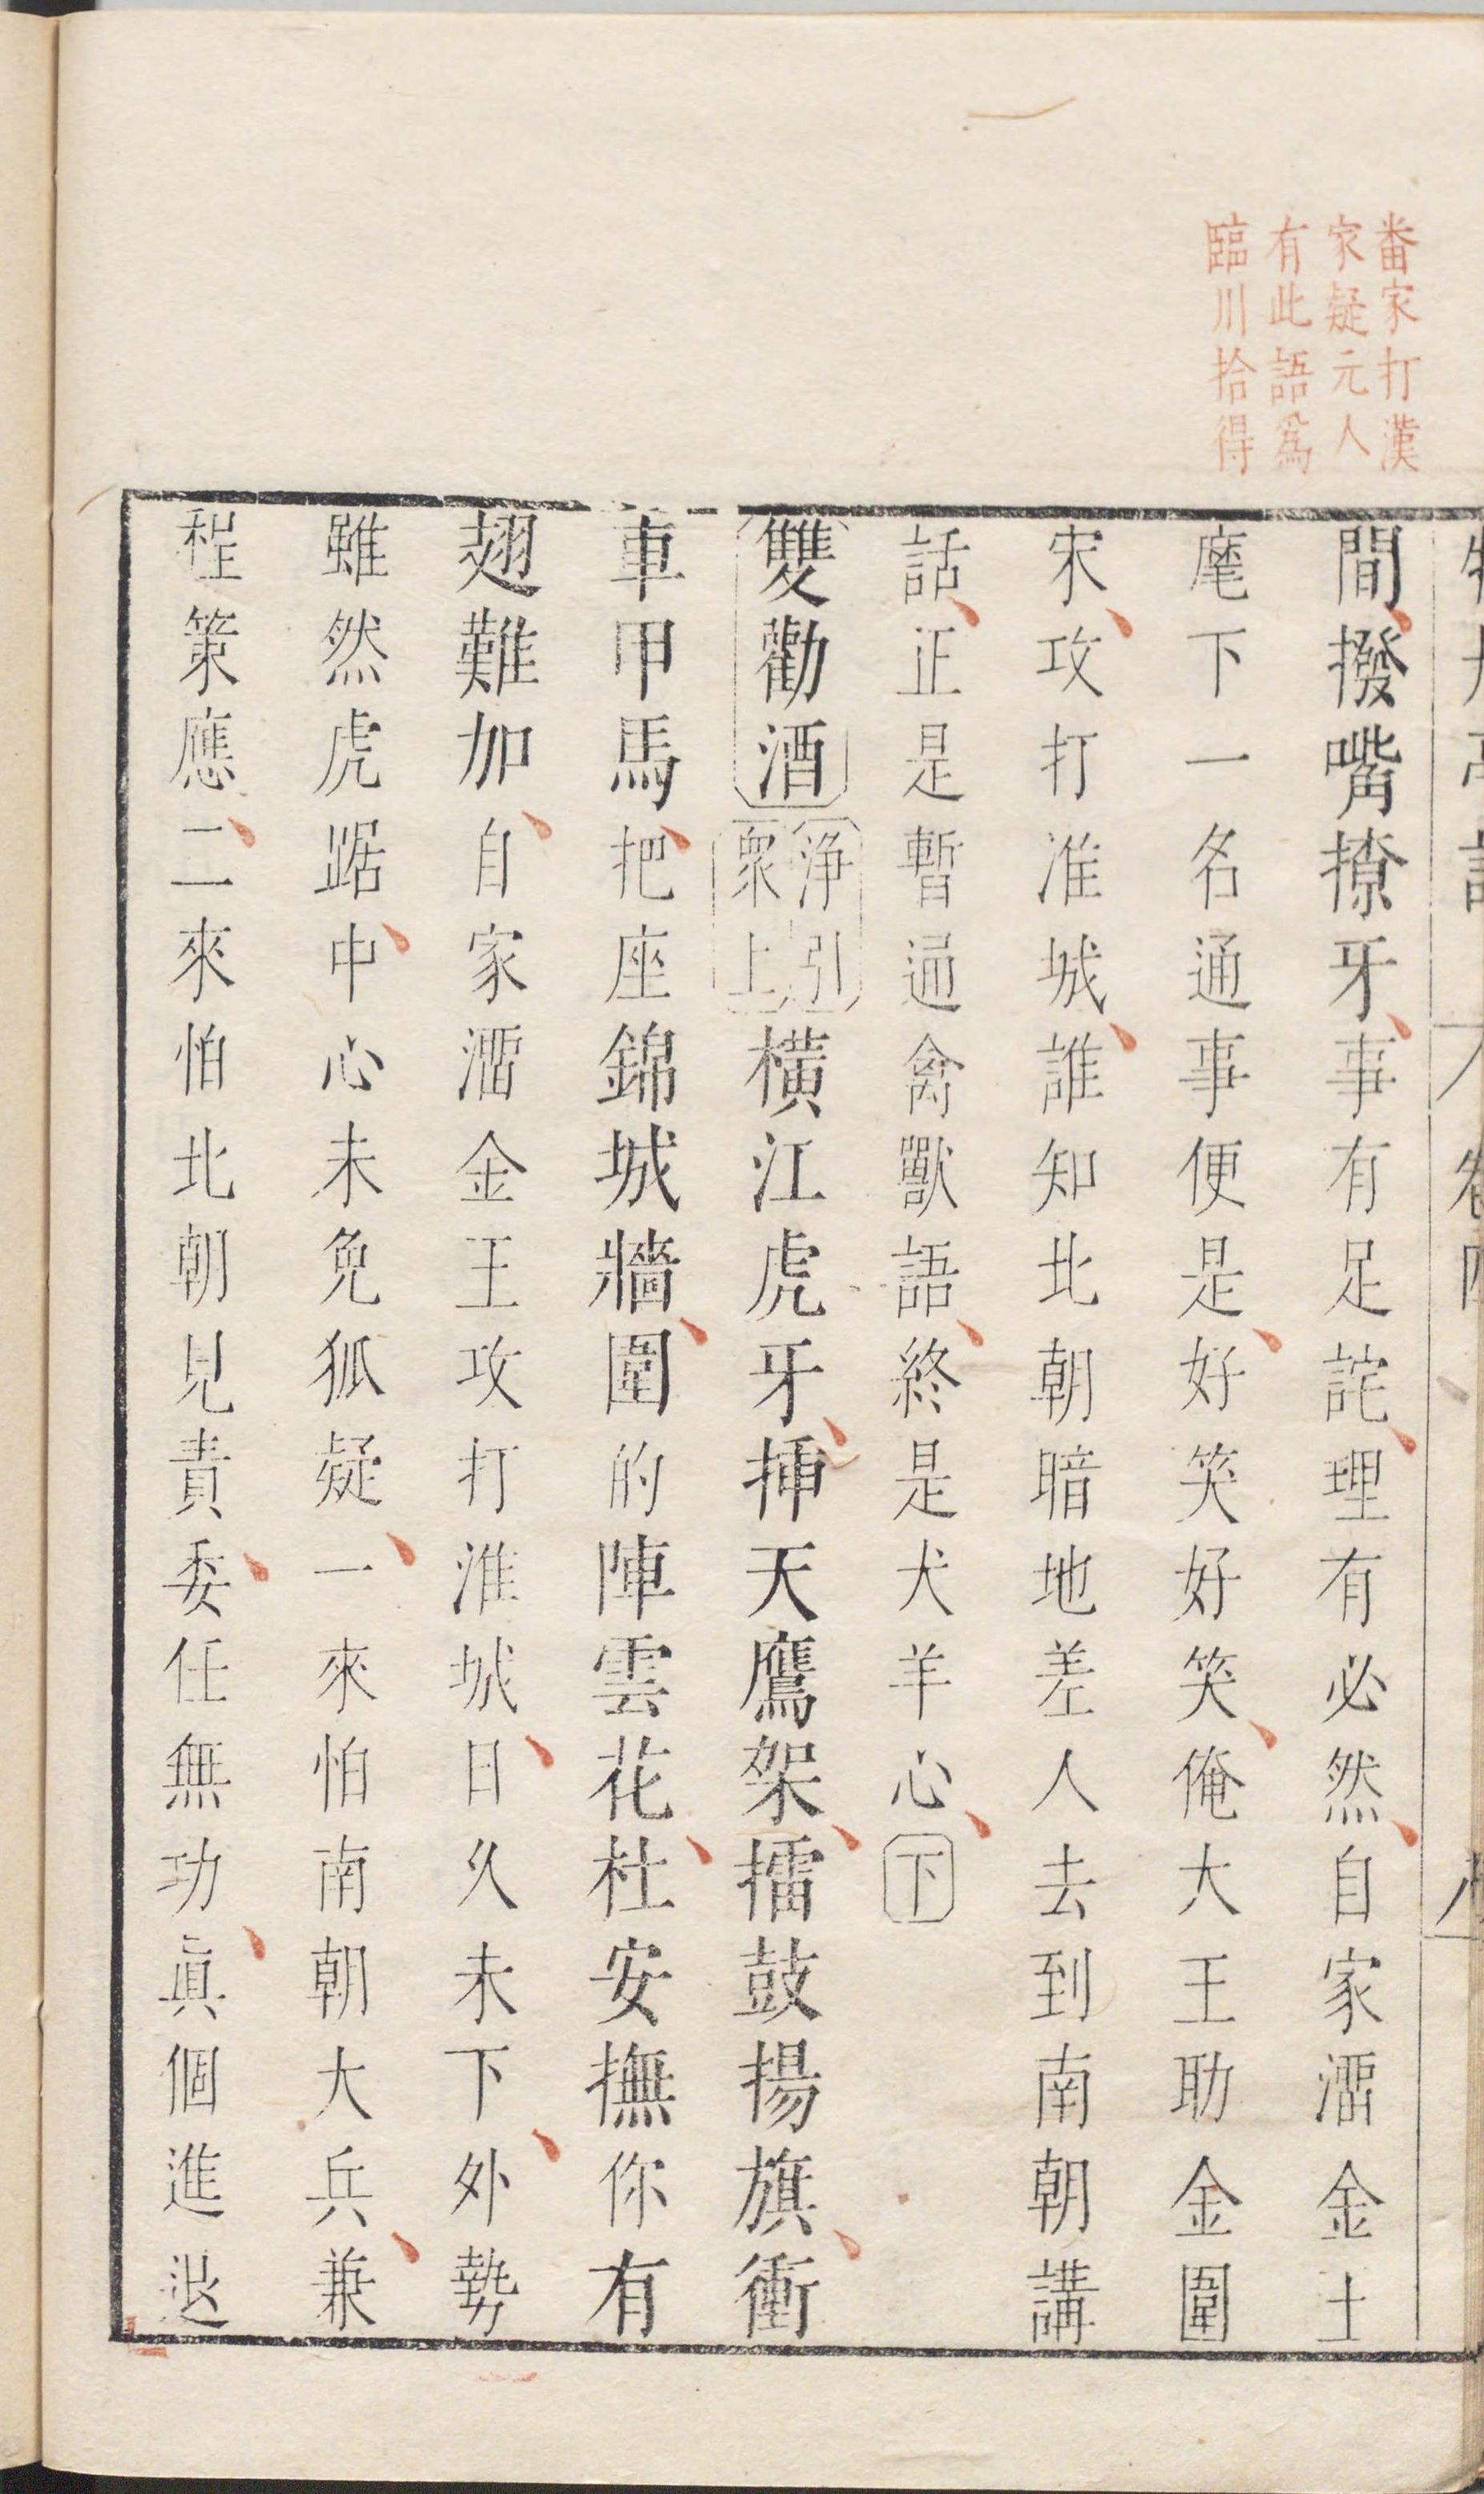 番家打漢
家疑元人
有此語爲
臨川拾得
間撥嘴撩牙事有足詫理有必然自家溜金土
麾下一名通事便是好笑好笑俺大王助金圍
宋攻打淮城誰知北朝暗地差人去到南朝講
話正是暫通禽獸語終是犬羊心下
雙勸酒淨引衆上橫江虎牙挿天鷹架擂鼓揚旗衝
車甲馬把座錦城牆圍的陣雲花杜安撫你有
翅難加自家溜金王攻打淮城日久未下外勢
雖然虎踞中心未免狐疑一來怕南朝大兵兼
程策應二來怕北朝見責委任無功眞個進退